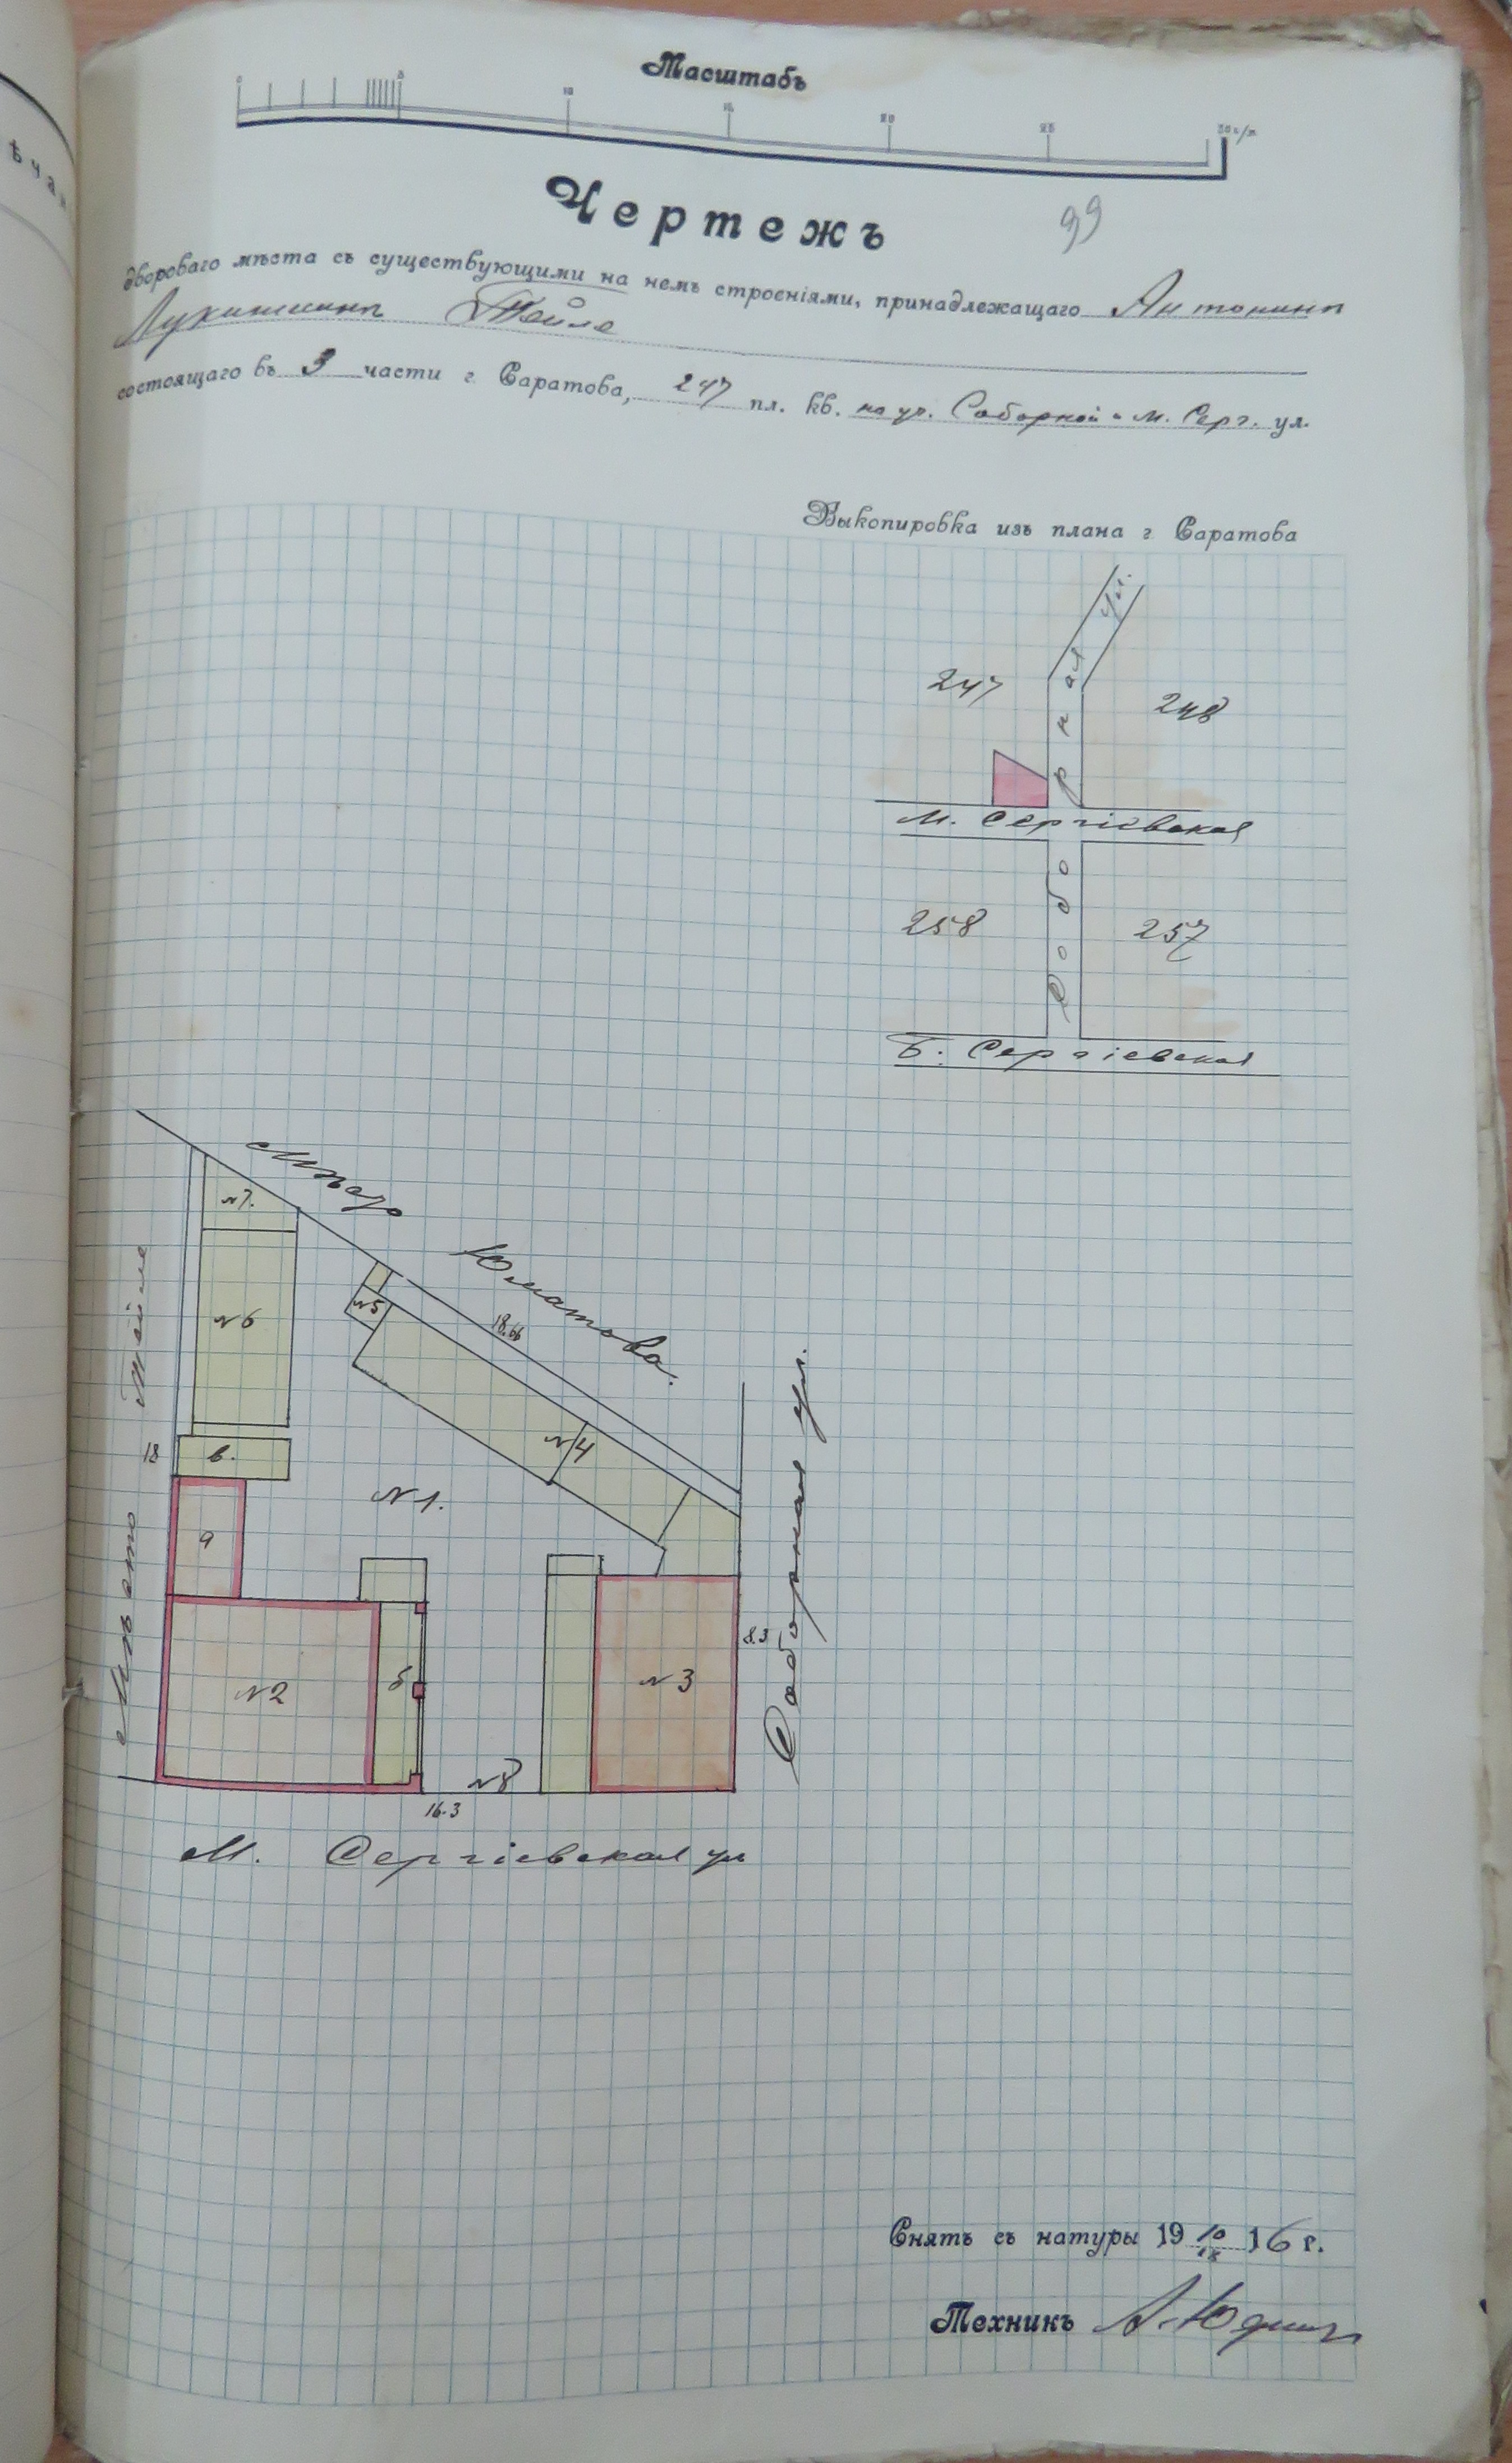 ѣчан
Масштабъ
0 5 10 15 20 25 30 с/ж
Чертежъ
99
дворового мѣста съ существующими на немъ строеніями, принадлежащаго Антонинѣ
Лукинишнѣ Тейле
состоящаго въ 3 части г. Саратова, 247 пл. кв. на уг. Соборной и М. Серг. ул.
Выкопировка изъ плана г. Саратова
247
248
Соборная ул.
М. Сергіевская
258
257
Б. Сергіевская
Юматова.
№ 7.
№ 6
№ 5
18.66
Мѣсто Тейле
18
в.
№ 4
№ 1.
а
Соборная ул.
8.3
№ 2
б
№ 3
№ 8
16.3
М. Сергіевская ул
Снятъ съ натуры 19 10/18 16 г.
Техникъ А. Юдинъ